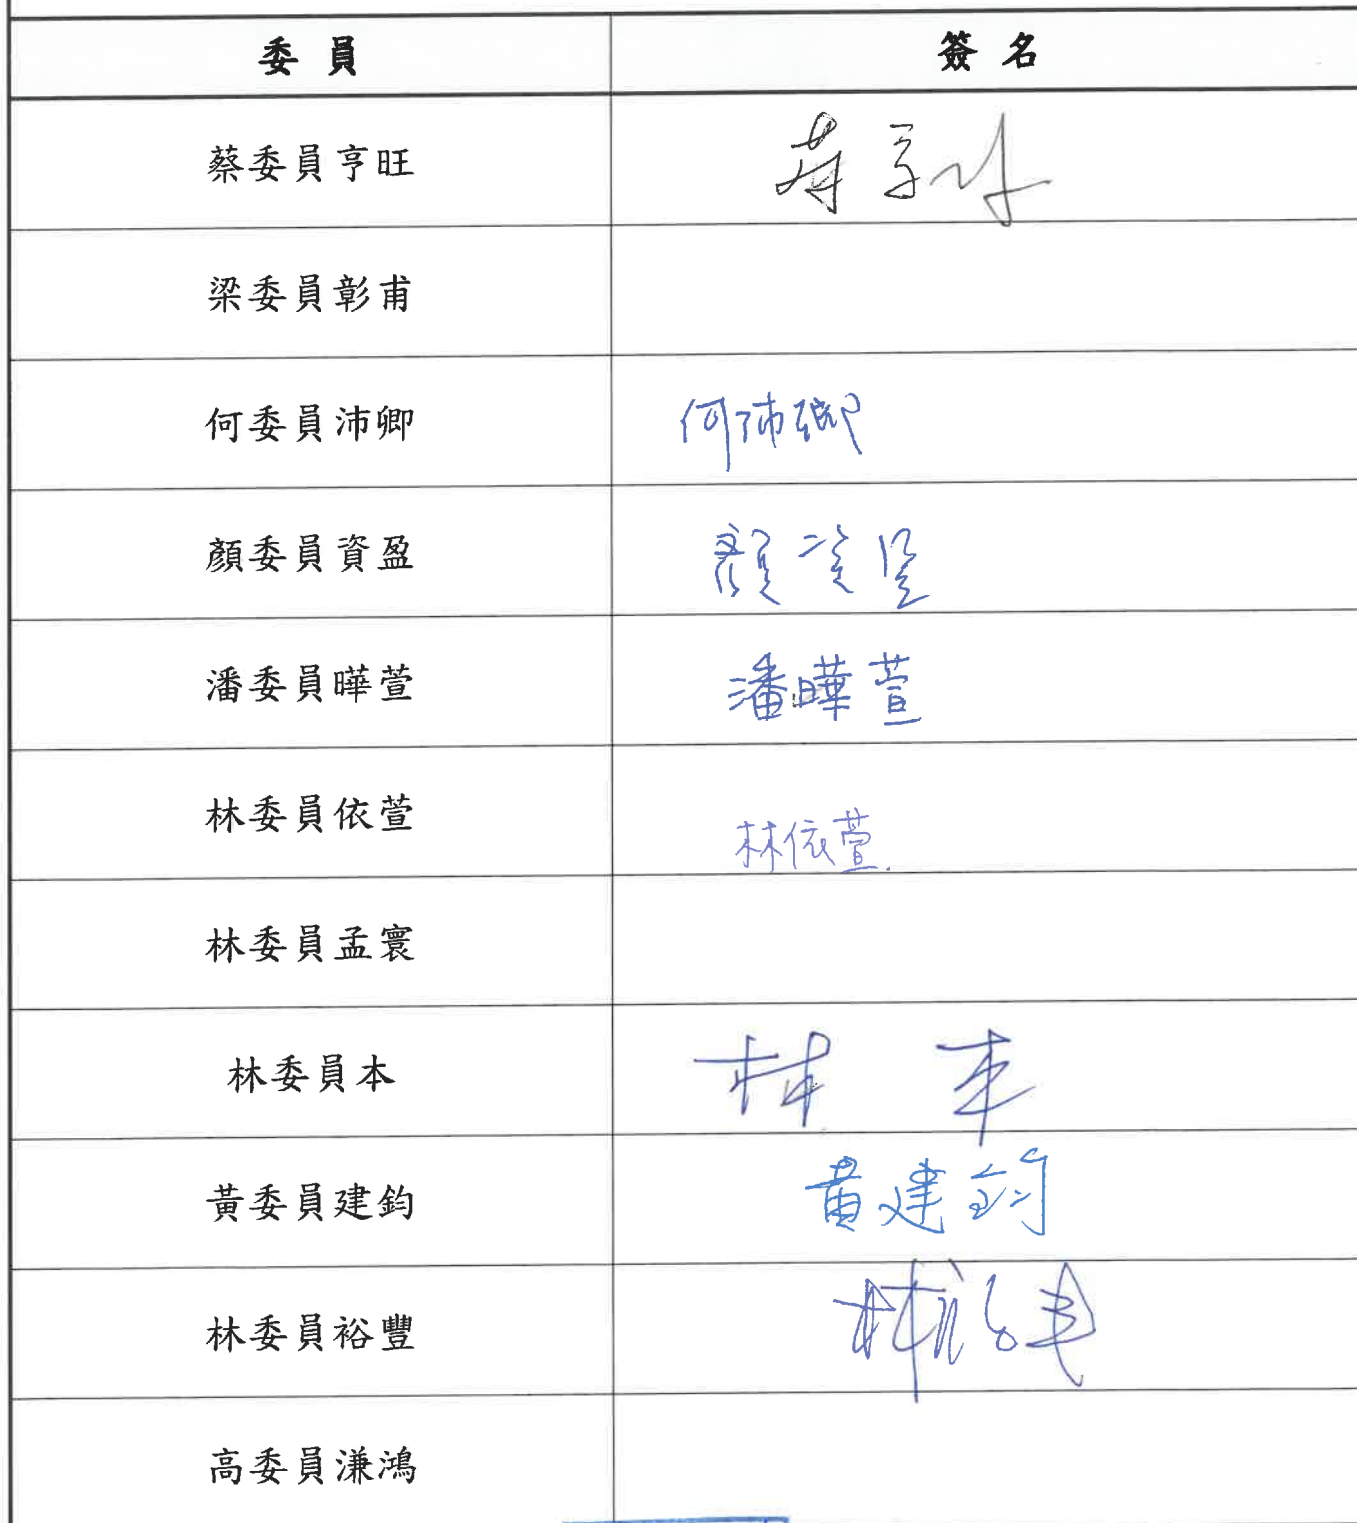 委員 簽名
蔡委員亨旺 蔡亨旺
梁委員彰甫
何委員沛卿 何沛卿
顏委員資盈 顏資盈
潘委員曄萱 潘曄萱
林委員依萱 林依萱
林委員孟寰
林委員本 林本
黃委員建鈞 黃建鈞
林委員裕豐 林裕豐
高委員溓鴻